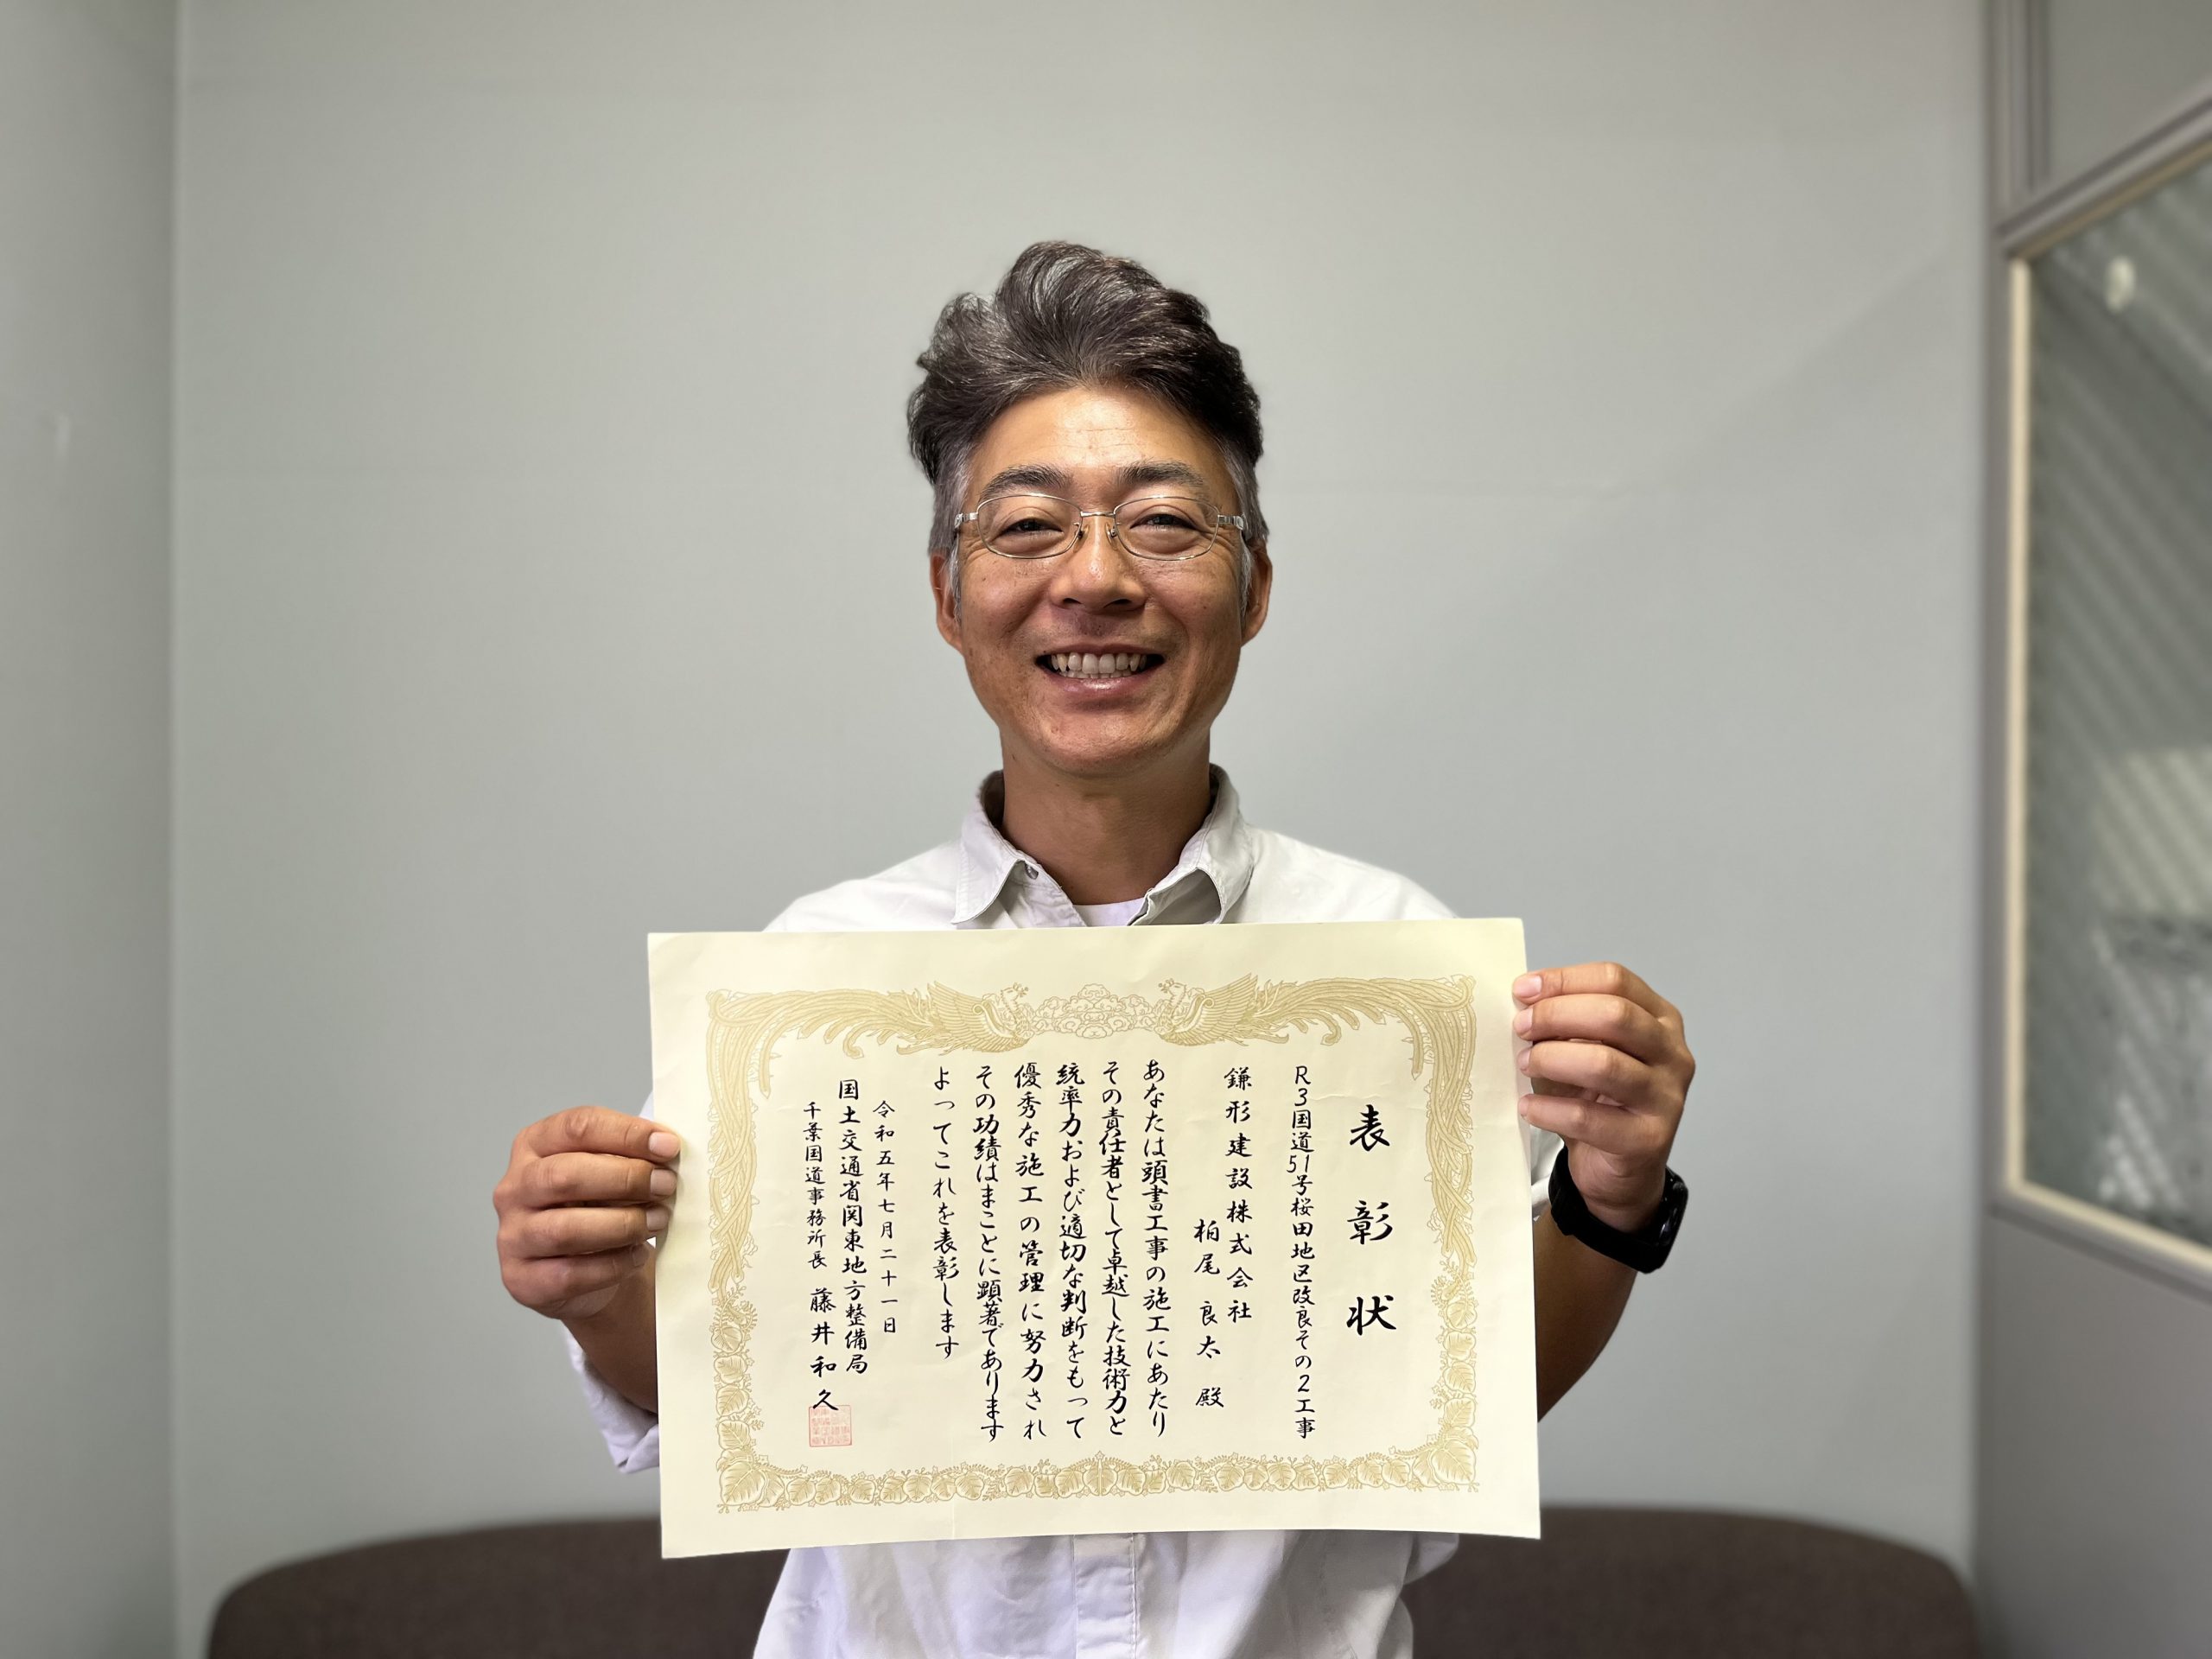 表彰状
R3国道51号桜田地区改良その2工事
鎌形建設株式会社
柏尾良太殿
あなたは頭書工事の施工にあたり
その責任者として卓越した技術力と
統率力および適切な判断をもって
優秀な施工の管理に努力され
その功績はまことに顕著であります
よってこれを表彰します
令和五年七月二十一日
国土交通省関東地方整備局
千葉国道事務所長 藤井和久